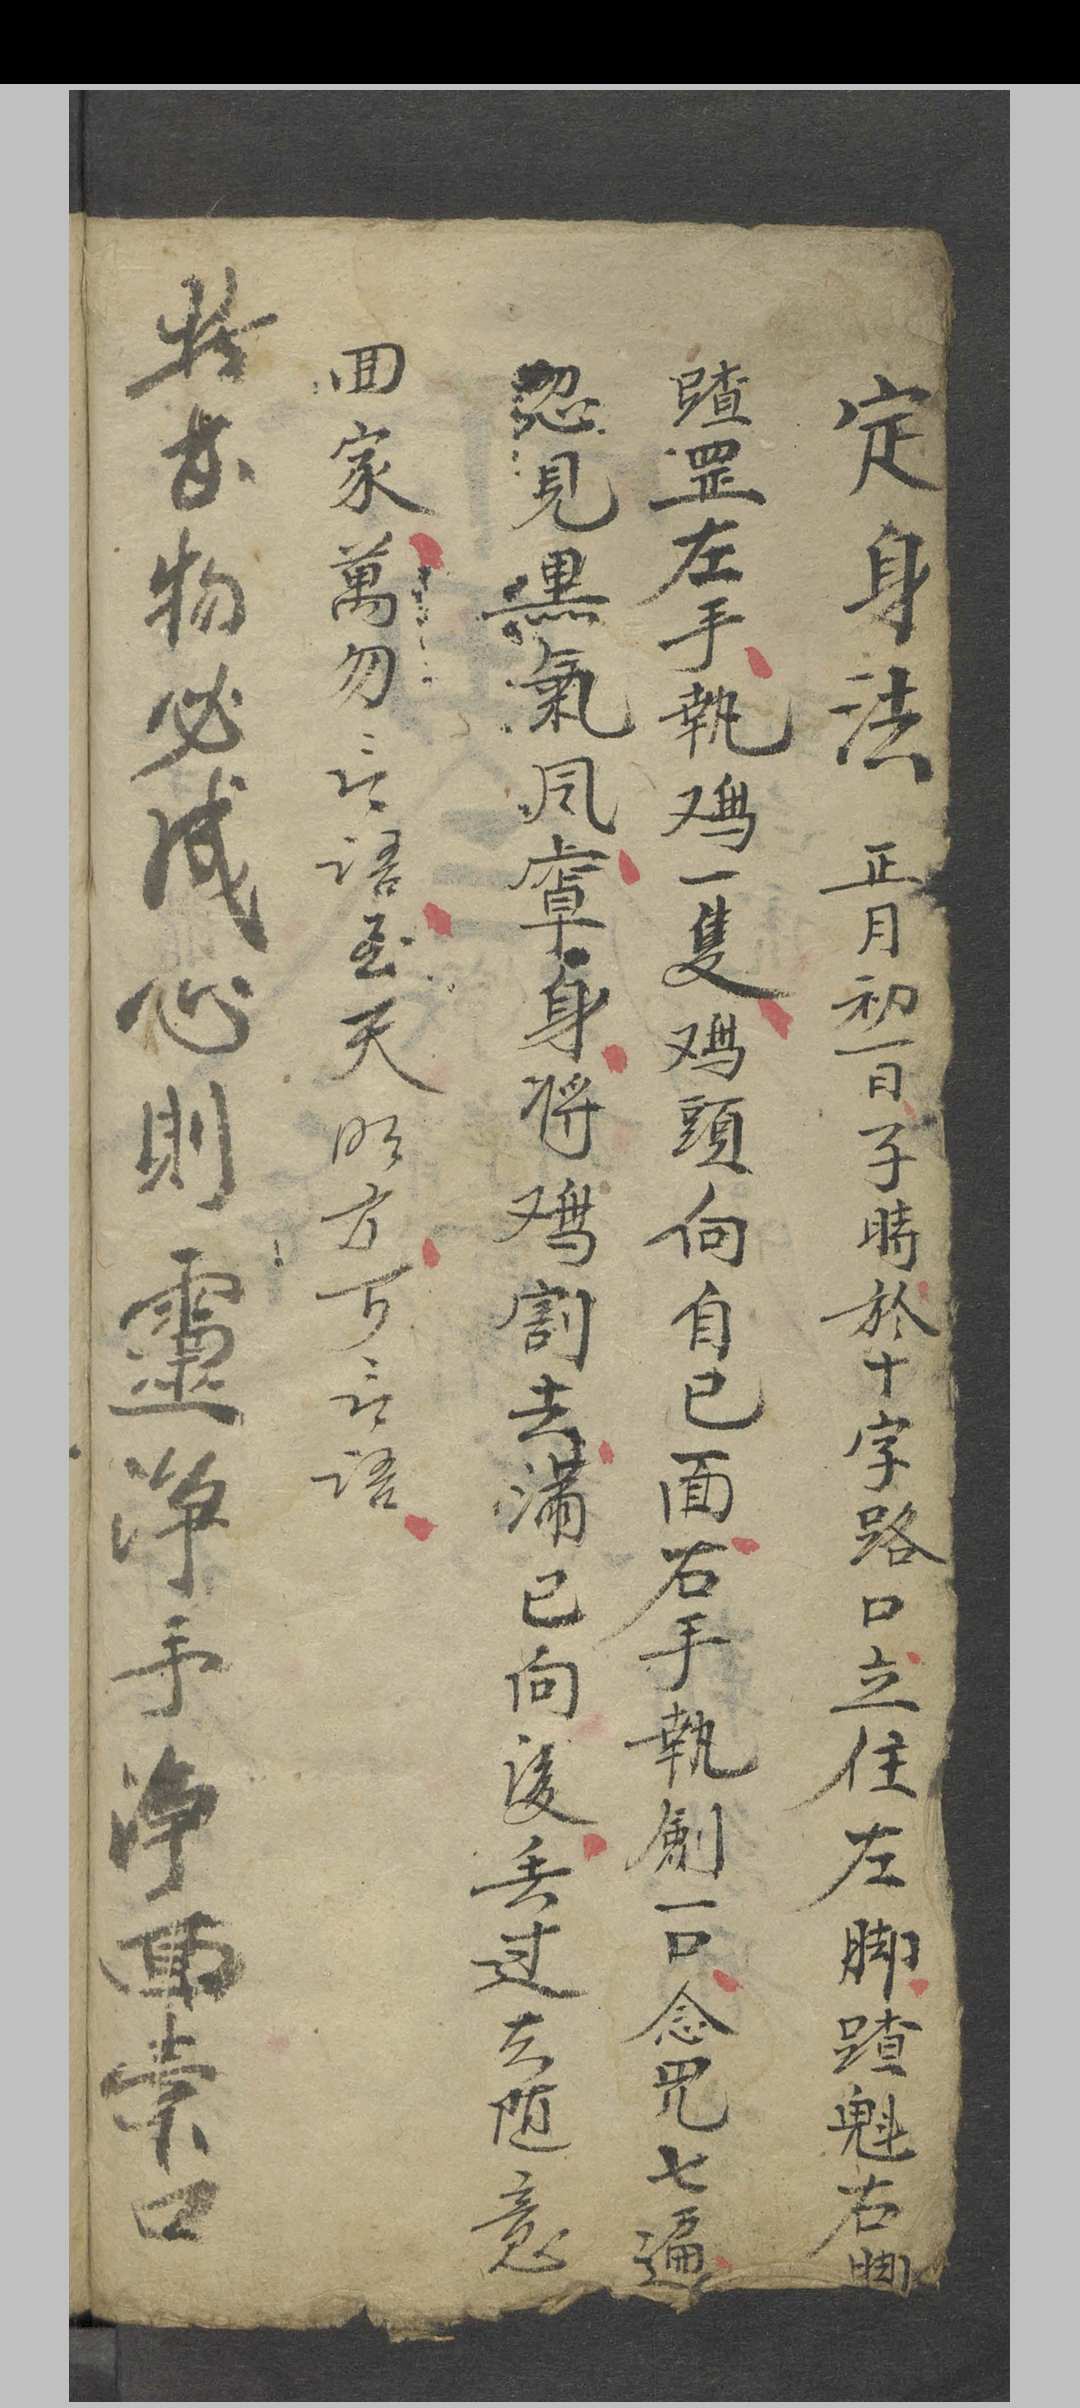 定身法 正月初一日子時於十字路口立住左脚蹅魁右脚
蹅罡左手執鸡一隻鸡頭向自己面右手執劍一口念咒七遍
忽見黑氣风罩身将鸡割去满已向後丢过去随意
回家萬勿言語至天明方可言語
物必诚心則靈淨手净面素口